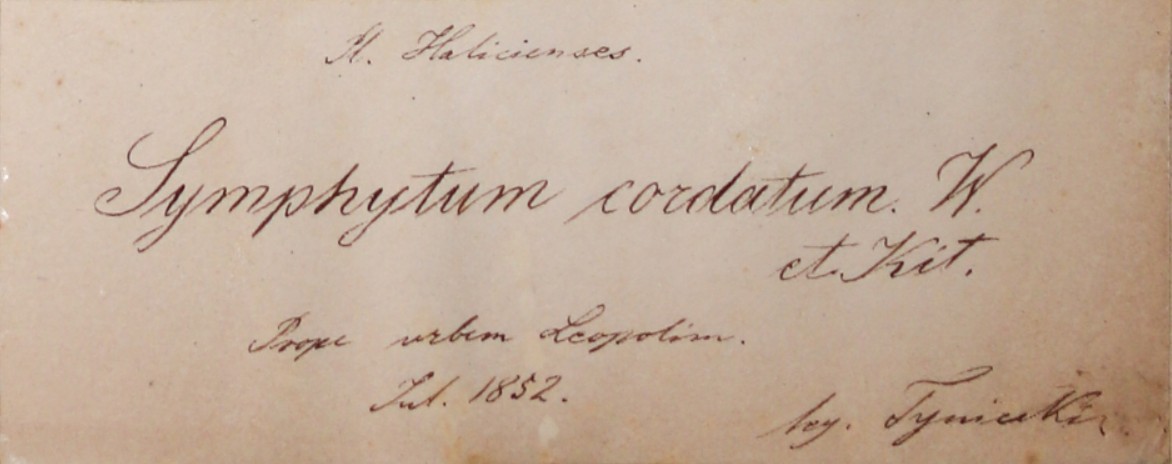 Pl. Halicienses.
Symphytum cordatum. W.
et. Kit.
Prope urbem Leopolim.
Jul. 1852.
leg. Tyniecki